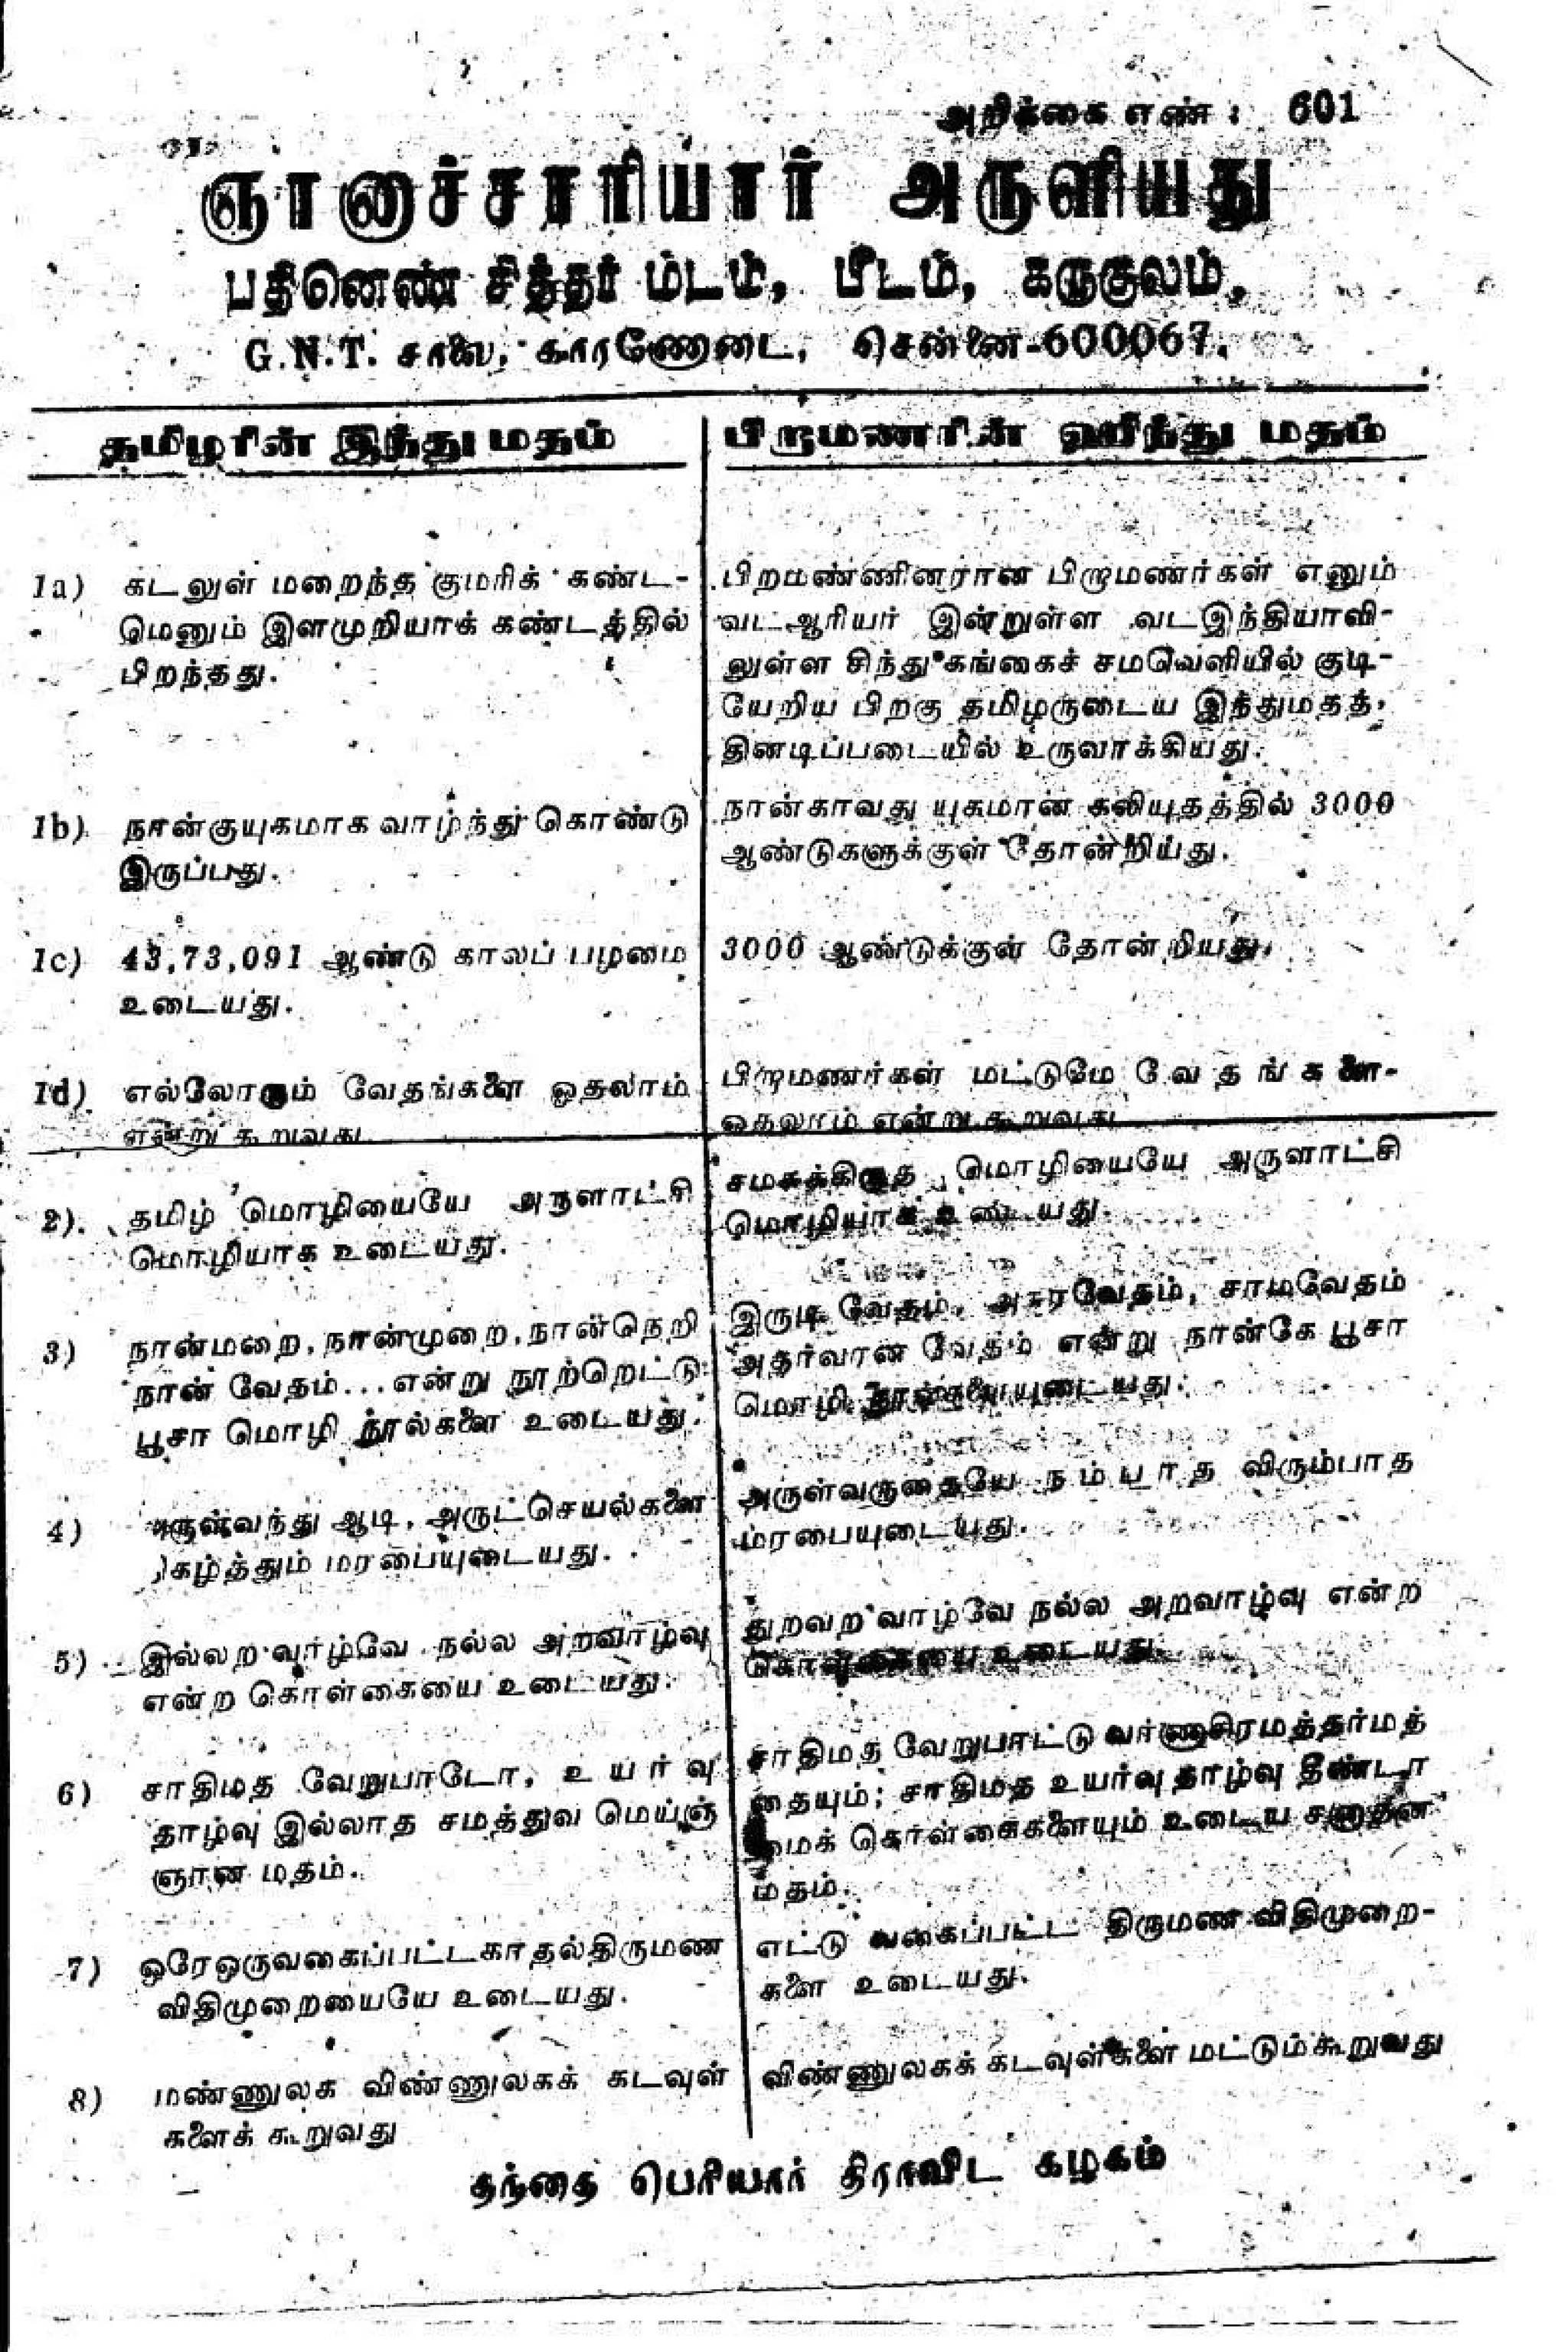 அறிக்கை எண் : 601
ஞானாச்சாரியார் அருளியது
பதினெண் சித்தர் மடம், பீடம், கருகுலம்,
G.N.T. சாலை, காரணோடை, சென்னை-600067.
தமிழரின் இந்து மதம்
1a) கடலுள் மறைந்த குமரிக் கண்ட-
மெனும் இளமுறியாக் கண்டத்தில்
பிறந்தது.
1b) நான்குயுகமாக வாழ்ந்து கொண்டு
இருப்பது.
1c) 43,73,091 ஆண்டு காலப் பழமை
உடையது.
1d) எல்லோரும் வேதங்களை ஓதலாம்
என்று கூறுவது
2). தமிழ் மொழியையே அருளாட்சி
மொழியாக உடையது.
3) நான்மறை, நான்முறை, நான்நெறி
நான் வேதம்... என்று நூற்றெட்டு
பூசா மொழி நூல்களை உடையது.
4) அருள்வந்து ஆடி, அருட்செயல்களை
நிகழ்த்தும் மரபையுடையது.
5) இல்லற வாழ்வே நல்ல அறவாழ்வு
என்ற கொள்கையை உடையது.
6) சாதிமத வேறுபாடோ, உயர்வு
தாழ்வு இல்லாத சமத்துவ மெய்ஞ்
ஞான மதம்.
7) ஒரேஒருவகைப்பட்டகாதல்திருமண
விதிமுறையையே உடையது.
8) மண்ணுலக விண்ணுலகக் கடவுள்
களைக் கூறுவது
பிறாமணரின் ஹிந்து மதம்
பிறமண்ணினரான பிறாமணர்கள் எனும்
வடஆரியர் இன்றுள்ள வடஇந்தியாவி-
லுள்ள சிந்து கங்கைச் சமவெளியில் குடி-
யேறிய பிறகு தமிழருடைய இந்துமதத்
தினடிப்படையில் உருவாக்கியது.
நான்காவது யுகமான கலியுகத்தில் 3000
ஆண்டுகளுக்குள் தோன்றியது.
3000 ஆண்டுக்குள் தோன்றியது.
பிறாமணர்கள் மட்டுமே வேதங்களை-
ஓதலாம் என்று கூறுவது
சமசுக்கிருத மொழியையே அருளாட்சி
மொழியாக உடையது.
இருடி வேதம், அசுரவேதம், சாமவேதம்
அதர்வான வேதம் என்று நான்கே பூசா
மொழி நூல்களையுடையது.
அருள்வருதையே நம்பாத விரும்பாத
மரபையுடையது.
துறவற வாழ்வே நல்ல அறவாழ்வு என்ற
கொள்கையை உடையது.
சாதிமத வேறுபாட்டு வர்ணாசிரமத்தர்மத்
தையும்; சாதிமத உயர்வு தாழ்வு தீண்டா
மைக் கொள்கைகளையும் உடைய சனாதன
மதம்.
எட்டு வகைப்பட்ட திருமண விதிமுறை-
களை உடையது.
விண்ணுலகக் கடவுள்களை மட்டும்கூறுவது
தந்தை பெரியார் திராவிட கழகம்